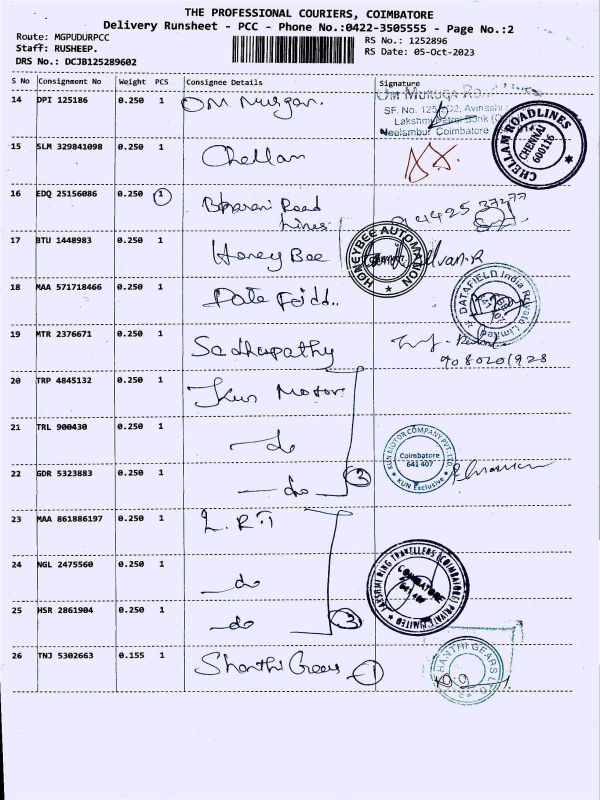 THE PROFESSIONAL COURIERS, COIMBATORE
Delivery Runsheet - PCC - Phone No.:0422-3505555 - Page No.:2
Route: MGPUDURPCC
Staff: RUSHEEP.
DRS No.: DCJB125289602
RS No.: 1252896
RS Date: 05-Oct-2023
S No Consignment No Weight PCS Consignee Details Signature
14 DPI 125186 0.250 1 OM Murgan.
Lakshmi
Neelambur Coimbatore
CHELLAM ROADLINES
CHENNAI
600116
15 SLM 329841098 0.250 1 Chellam
16 EDQ 25156086 0.250 1 Bharani Road
Lines
17 BTU 1448983 0.250 1 Honey Bee
HONEYBEE AUTOMATION
18 MAA 571718466 0.250 1 Date Feidd..
DATAFIELD India Private Limited
19 MTR 2376671 0.250 1 Sadhupathy
9080201928
20 TRP 4845132 0.250 1 Kun Motor
21 TRL 900430 0.250 1 do
KUN MOTOR COMPANY PVT. LTD.
Coimbatore
641 407
KUN Exclusive
22 GDR 5323883 0.250 1 do 3
23 MAA 861886197 0.250 1 L.R.T
24 NGL 2475560 0.250 1 do
LAKSHMI RING TRAVELLERS (COIMBATORE) PRIVATE LIMITED
COIMBATORE
25 HSR 2861904 0.250 1 do 3
26 TNJ 5302663 0.155 1 Shanthi Gears 1
SHANTHI GEARS LTD